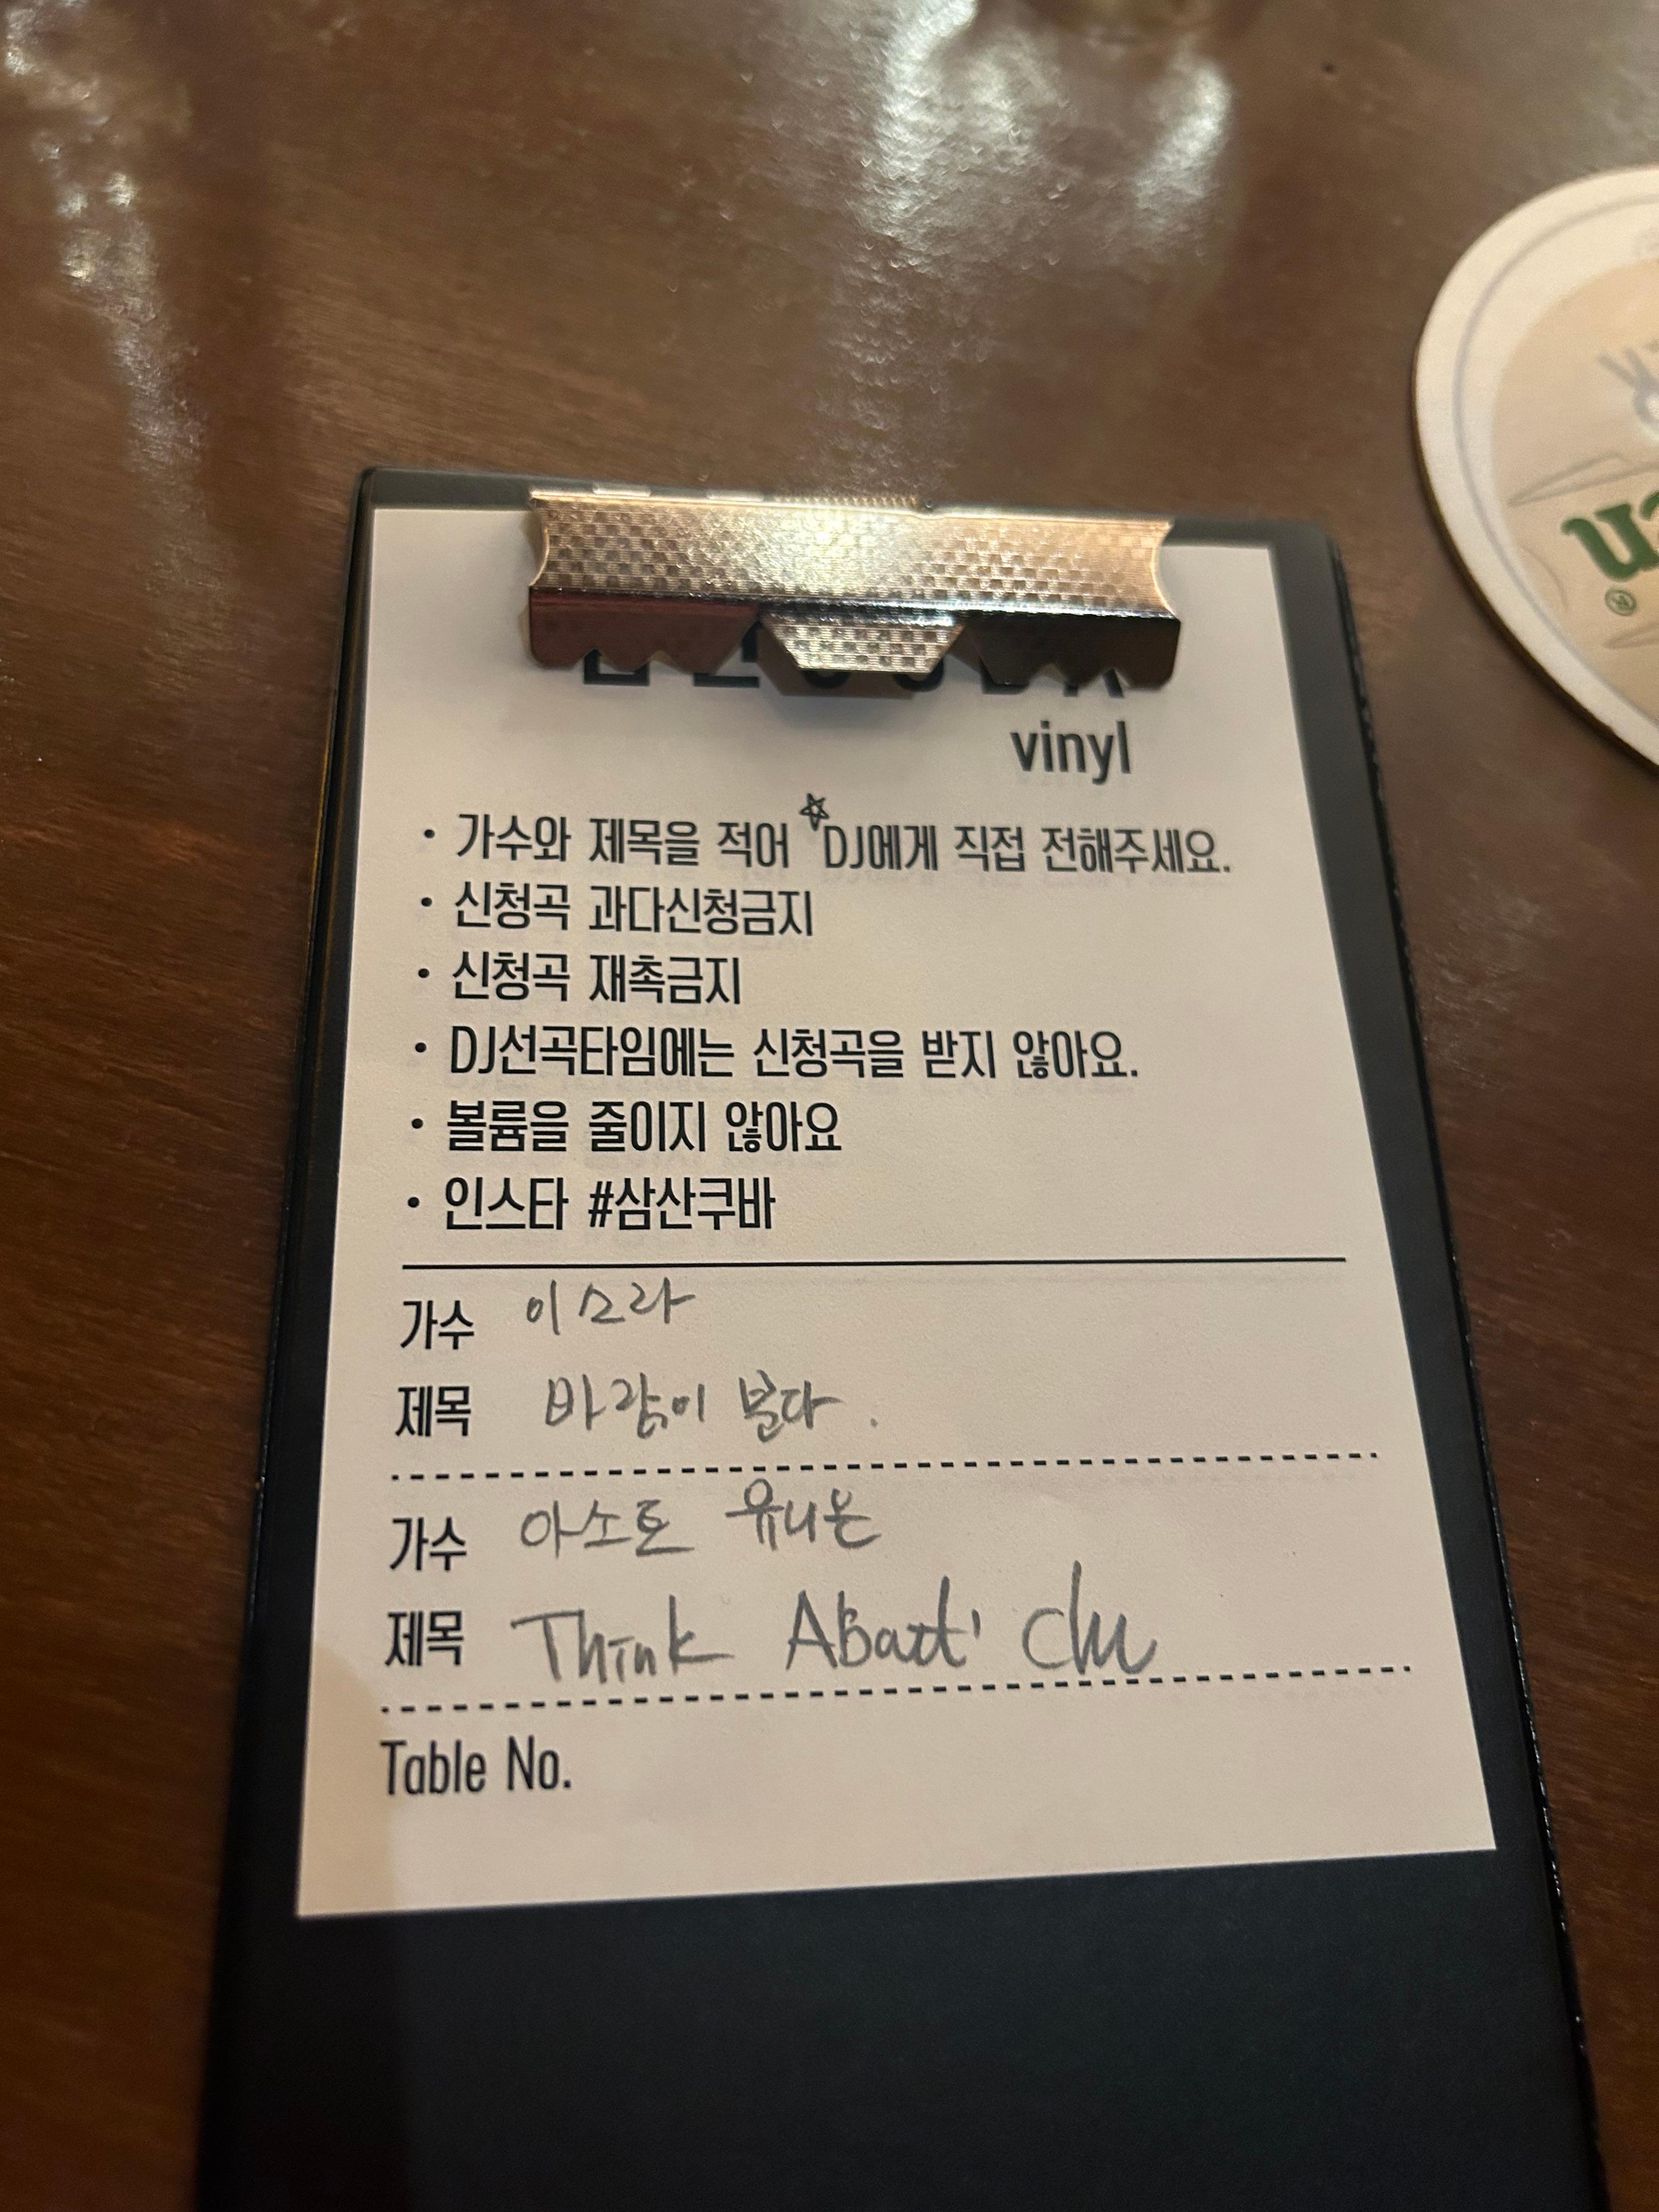 vinyl
• 가수와 제목을 적어 ☆DJ에게 직접 전해주세요.
• 신청곡 과다신청금지
• 신청곡 재촉금지
• DJ선곡타임에는 신청곡을 받지 않아요.
• 볼륨을 줄이지 않아요
• 인스타 #삼산쿠바
가수 이소라
제목 바람이 분다.
가수 아소토 유니온
제목 Think About' chu
Table No.